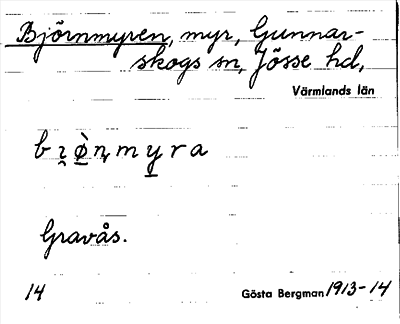 Björnmyren, myr, Gunnar-
skogs sn, Jösse hd,
Värmlands län
Gravås.
14
Gösta Bergman 1913-14